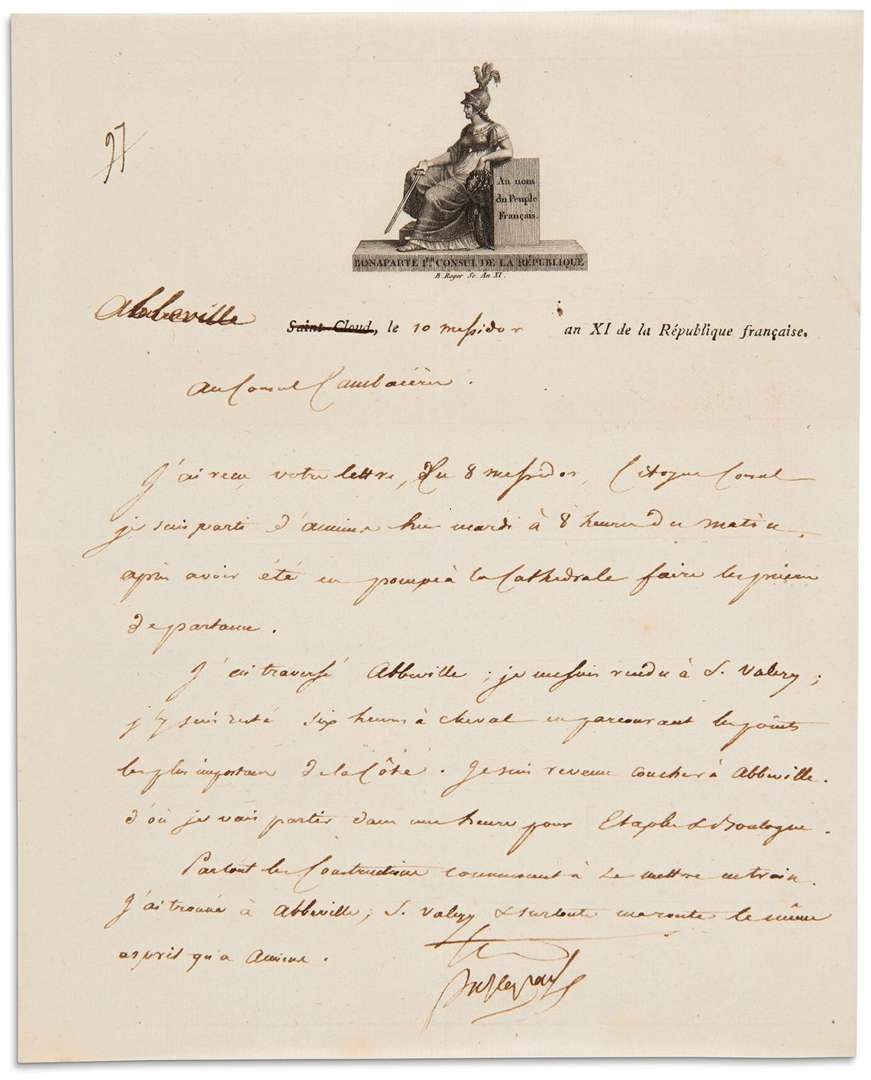 97
Au nom
du Peuple
Français.
BONAPARTE P.er CONSUL DE LA RÉPUBLIQUE
B. Roger Sc. An XI.
Abbeville Saint-Cloud, le 10 messidor an XI de la République française.
Au Consul Cambacérès.
J'ai reçu, votre lettre, du 8 messidor, Citoyen Consul
je suis parti d'amiens hier mardi à 8 heures du matin,
après avoir été en pompe à la Cathedrale faire les prières
de partance.
J'ai traversé Abbeville; je me suis rendu à S. Valery;
j'y suis resté six heures à cheval en parcourant les points
les plus importans de la Côte. Je suis revenu coucher à Abbeville.
d'où je vais partir dans une heure pour Etaples & Boulogne.
Partout les Constructions commencent à se mettre en train.
J'ai trouvé à Abbeville, S. Valery & sur toute ma route le même
esprit qu'a Amiens.